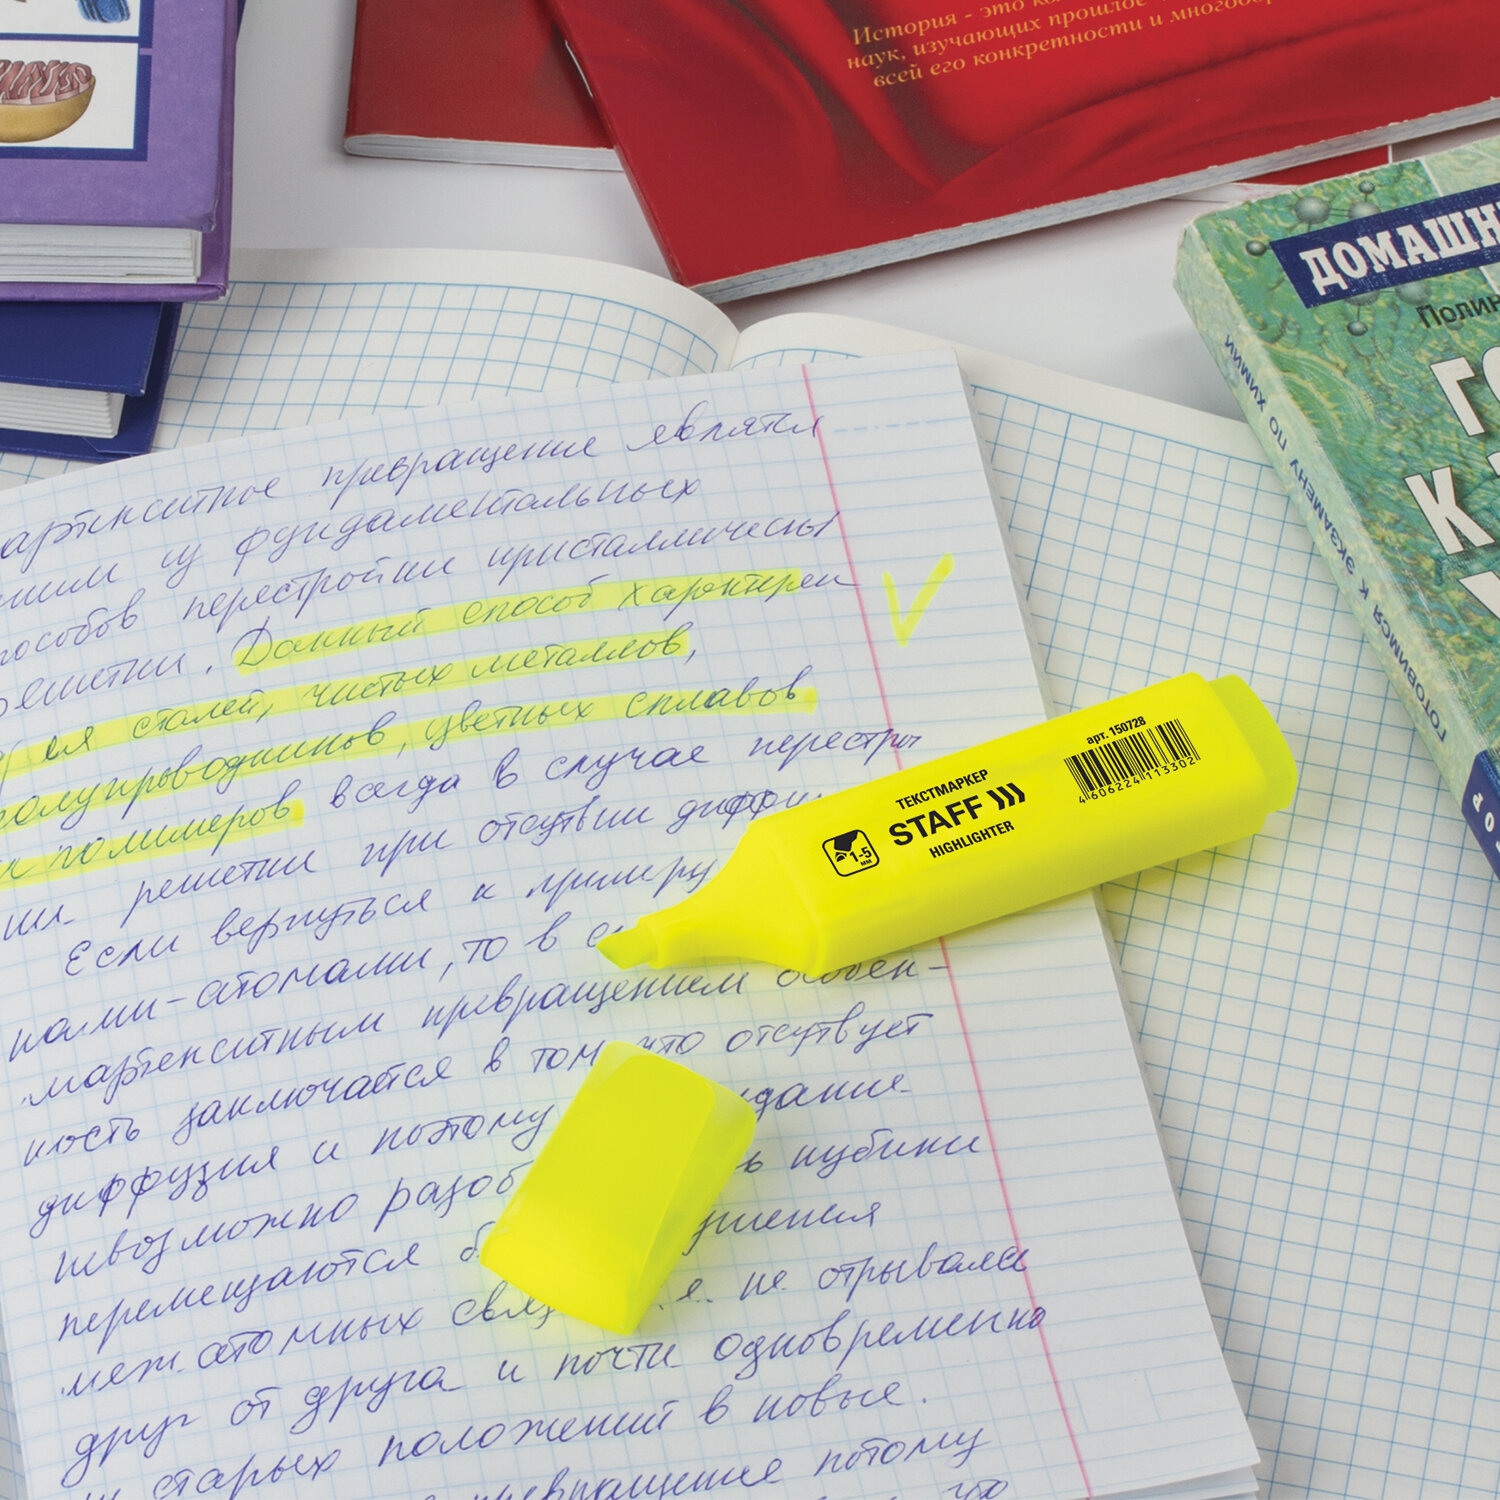 История - это ко
наук, изучающих прошлое
всей его конкретности и многооб
ДОМАШН
Полин
ГО
К
У
ГОТОВИМСЯ К ЭКЗАМЕНУ ПО ХИМИИ
артенситное превращение являтся
ним из фундаментальных
пособов перестройки кристаллическы
решетки. Данный способ характерен
для сталей, чистых металлов,
полупроводников, цветных сплавов
и полимеров всегда в случае перестрой
решетки при отсутвии дифф
Если вернуться к примеру
ками-атомами, то в с
мартенситным превращением особен-
ность заключается в том, что отсутвует
диффузия и поэтому идание
невозможно разоб ь кубики
перемещаются б ушения
меж.атомных связ .е. не отрывался
друг от друга и почти одновременно
старых положений в новые.
превращение потому
что
арт. 150728
4 606224 113302
ТЕКСТМАРКЕР
STAFF
HIGHLIGHTER
1-5
мм